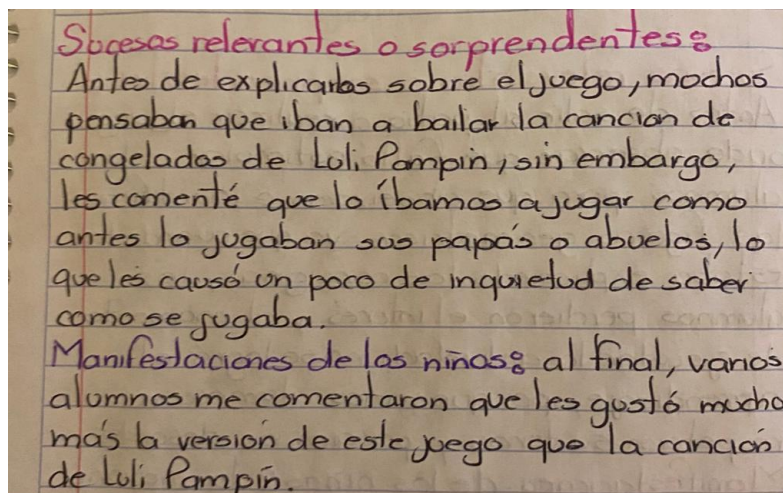 Sucesos relevantes o sorprendentes:
Antes de explicarlos sobre el juego, muchos
pensaban que iban a bailar la cancion de
congelados de Luli Pampin, sin embargo,
les comenté que lo íbamos a jugar como
antes lo jugaban sus papás o abuelos, lo
que les causó un poco de inquietud de saber
como se jugaba.
Manifestaciones de los niños: al final, varios
alumnos me comentaron que les gustó mucho
más la versión de este juego que la canción
de Luli Pampín.